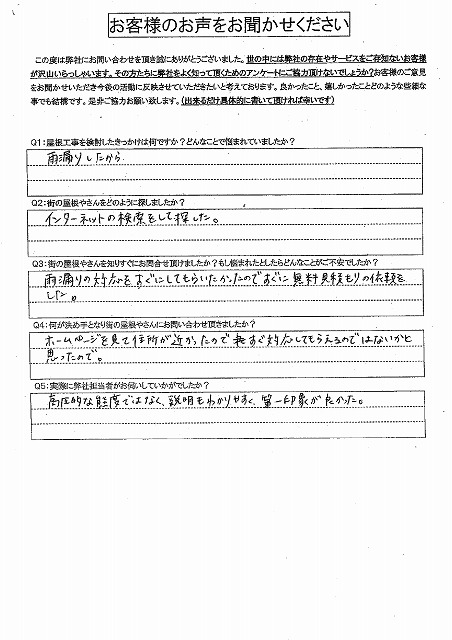 お客様のお声をお聞かせください
この度は弊社にお問い合わせを頂き誠にありがとうございました。世の中には弊社の存在やサービスをご存知ないお客様
が沢山いらっしゃいます。その方たちに弊社をよく知って頂くためのアンケートにご協力頂けないでしょうか?お客様のご意見
をお聞かせいただき今後の活動に反映させていただきたいと考えております。良かったこと、嬉しかったことどのような些細な
事でも結構です。是非ご協力お願い致します。(出来るだけ具体的に書いて頂ければ幸いです)
Q1:屋根工事を検討したきっかけは何ですか?どんなことで悩まれていましたか?
雨漏りしたから
Q2:街の屋根やさんをどのように探しましたか?
インターネットの検索をして探した。
Q3:街の屋根やさんを知りすぐにお問合せ頂けましたか?もし悩まれたとしたらどんなことがご不安でしたか?
雨漏りの対応をすぐにしてもらいたかったのですぐに無料見積もりの依頼を
した。
Q4:何が決め手となり街の屋根やさんにお問い合わせ頂きましたか?
ホームページを見て住所が近かったので すぐ対応してもらえるのではないかと
思ったので。
Q5:実際に弊社担当者がお伺いしていかがでしたか?
高圧的な態度ではなく、説明もわかりやすく、第一印象が良かった。